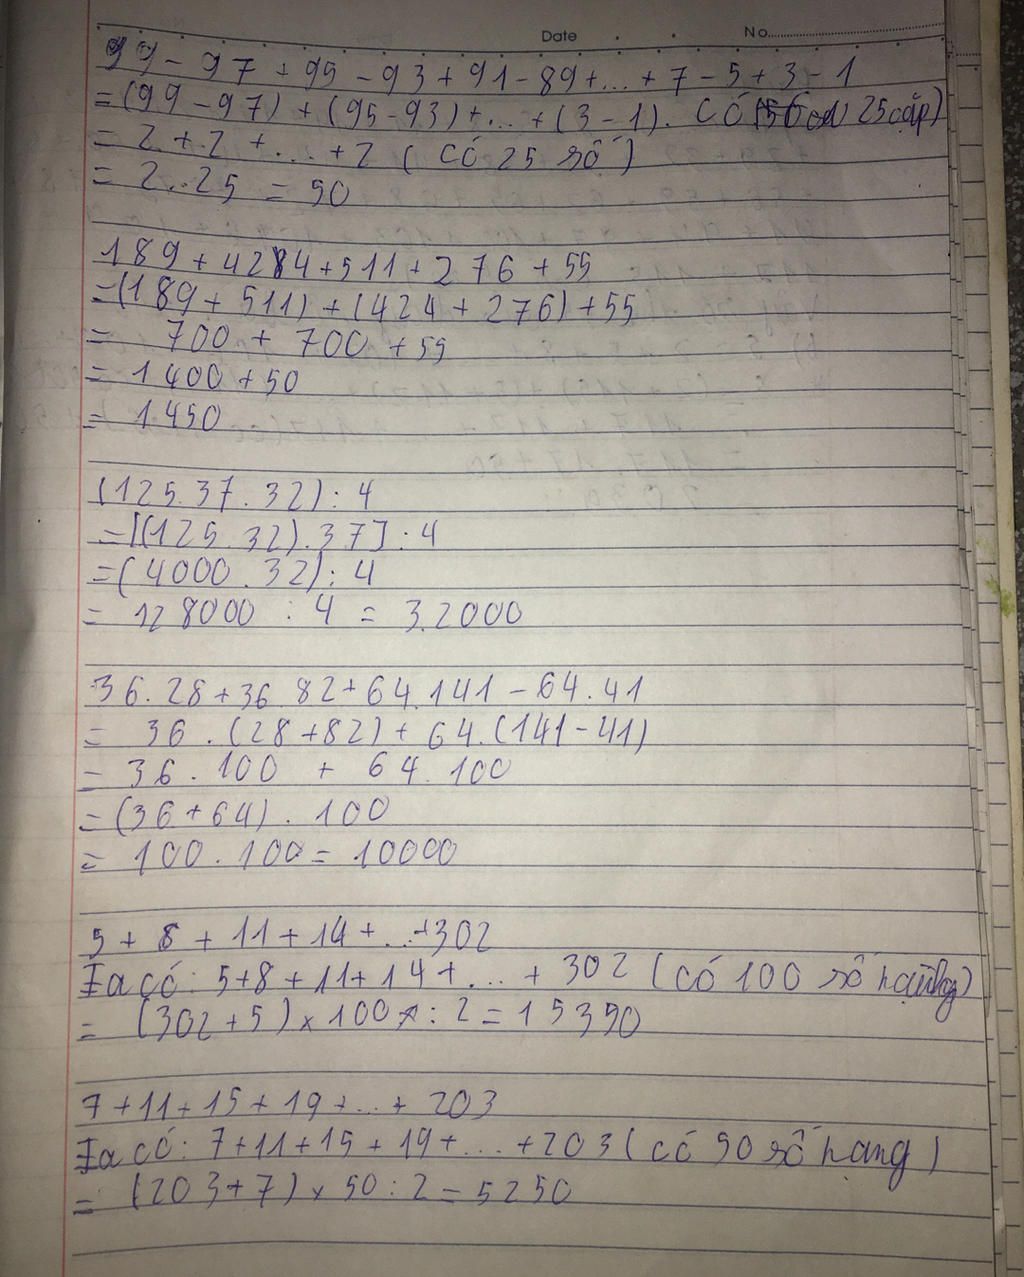 Date No
99 - 97 + 95 - 93 + 91 - 89 + ... + 7 - 5 + 3 - 1
= (99 - 97) + (95 - 93) + ... + (3 - 1). Có 25 cặp)
= 2 + 2 + ... + 2 ( Có 25 số )
= 2 . 25 = 50
189 + 4284 + 511 + 276 + 55
= (189 + 511) + (424 + 276) + 55
= 700 + 700 + 55
= 1400 + 50
= 1450
(125.37.32) : 4
= [(125.32).37] : 4
= (4000.32) : 4
= 128000 : 4 = 32000
36.28 + 36.82 + 64.141 - 64.41
= 36 . (28 + 82) + 64.(141 - 41)
= 36 . 100 + 64 . 100
= (36 + 64) . 100
= 100 . 100 = 10000
5 + 8 + 11 + 14 + ... + 302
Ta có: 5 + 8 + 11 + 14 + ... + 302 (có 100 số hạng)
= (302 + 5) × 100 : 2 = 15350
7 + 11 + 15 + 19 + ... + 203
Ta có: 7 + 11 + 15 + 19 + ... + 203 ( có 50 số hang )
= (203 + 7) × 50 : 2 = 5250